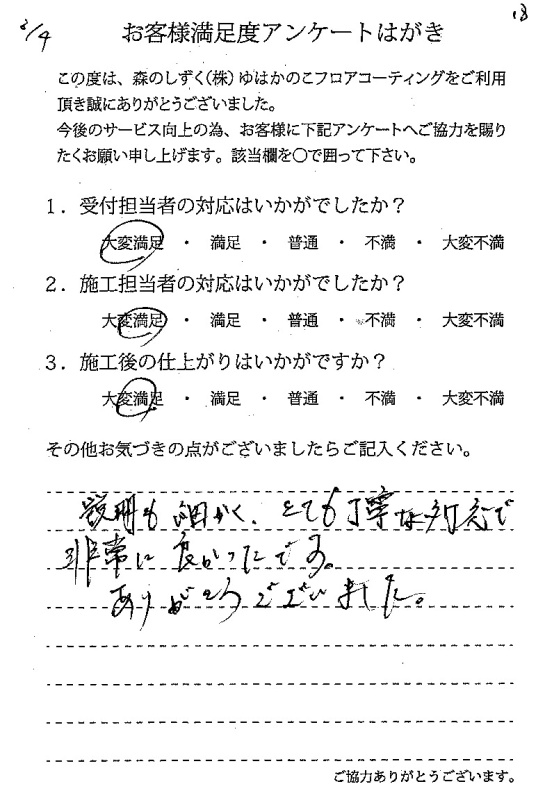 3/4
18
お客様満足度アンケートはがき
この度は、森のしずく(株)ゆはかのこフロアコーティングをご利用
頂き誠にありがとうございました。
今後のサービス向上の為、お客様に下記アンケートへご協力を賜り
たくお願い申し上げます。該当欄を○で囲って下さい。
1．受付担当者の対応はいかがでしたか？
大変満足 ・ 満足 ・ 普通 ・ 不満 ・ 大変不満
2．施工担当者の対応はいかがでしたか？
大変満足 ・ 満足 ・ 普通 ・ 不満 ・ 大変不満
3．施工後の仕上がりはいかがですか？
大変満足 ・ 満足 ・ 普通 ・ 不満 ・ 大変不満
その他お気づきの点がございましたらご記入ください。
説明も細かく、とても丁寧な対応で
非常に良かったです。
ありがとうございました。
ご協力ありがとうございます。